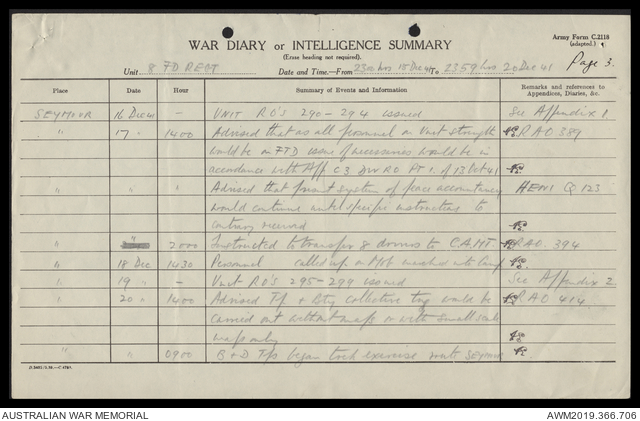 Army Form C.2118
(adapted.)
WAR DIARY or INTELLIGENCE SUMMARY
(Erase heading not required).
Page 3.
Unit 8 FD REGT Date and Time.—From 2300 hrs 15 Dec 41 To 2359 hrs 20 Dec 41
Place Date Hour Summary of Events and Information Remarks and references to Appendices, Diaries, &c.
SEYMOUR 16 Dec 41 – UNIT R O'S 290 – 294 issued See Appendix 1
" 17 " 1400 Advised that as all personnel on Unit strength RAO 389
would be on FTD issue of necessaries would be in
accordance with App C3 DIV RO Pt 1. of 13 Oct 41
" " " Advised that present system of peace accountancy HEMI Q 123
would continue until specific instructions to
contrary received
" " 2000 Instructed to transfer 8 drivers to C.A.M.T. RAO. 394
" 18 Dec 1430 Personnel called up on Mob marched into Camp.
" 19 " – Unit RO'S 295 – 299 issued See Appendix 2.
" 20 " 1400 Advised Tp & Bty collective trg would be RAO 414
carried out without maps or with small scale
maps only
" " 0900 B & D Tps began trek exercise route SEYMOUR
AUSTRALIAN WAR MEMORIAL AWM2019.366.706